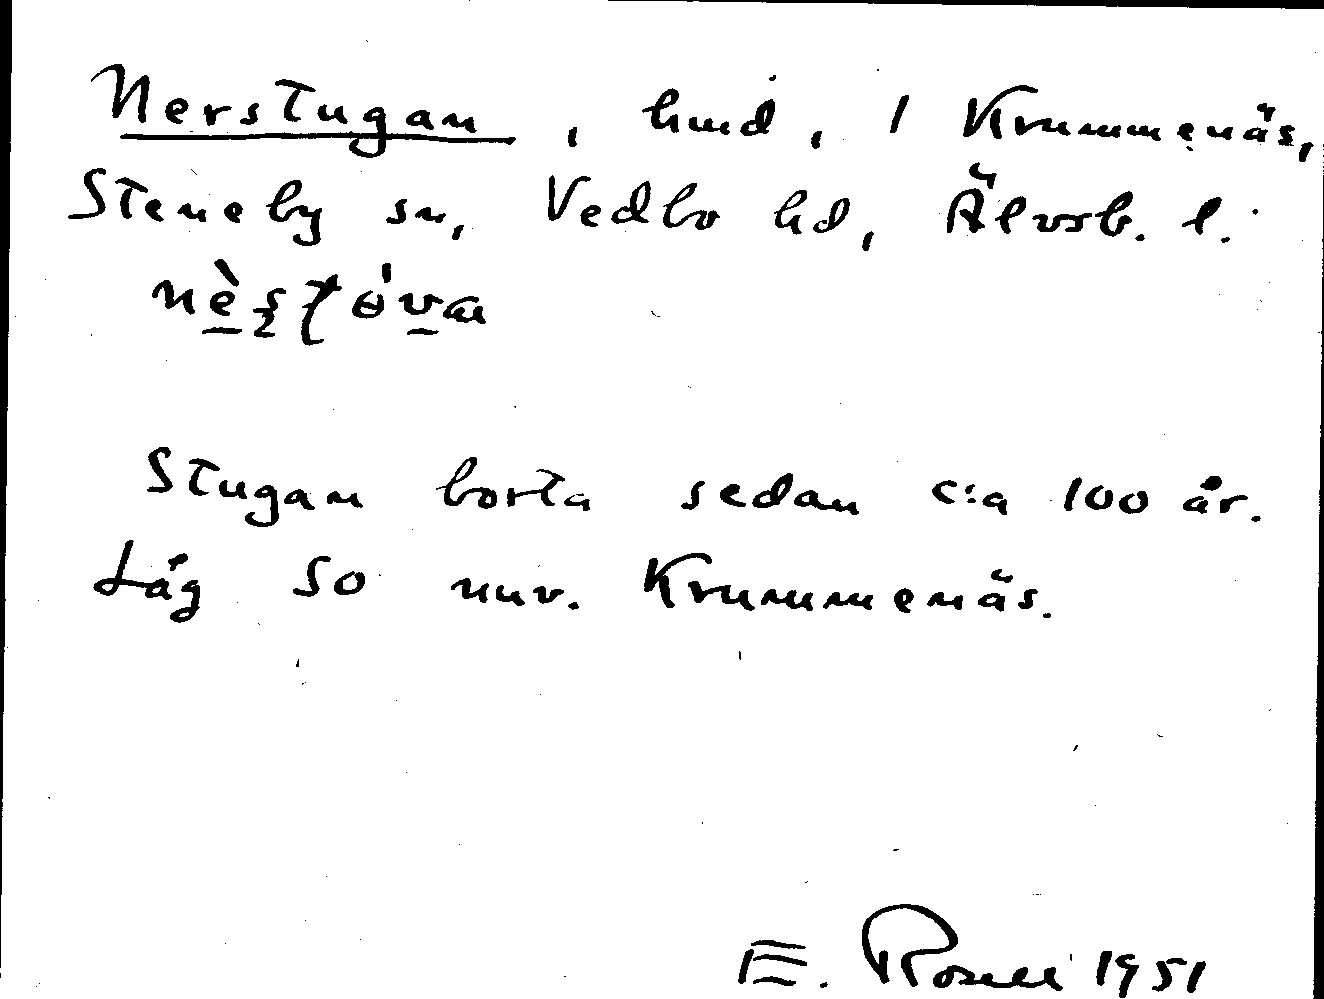 Nerstugan, hmd, 1 Krummenäs,
Steneby sn, Vedbo hd, Älvsb. l.
Stugan borta sedan c:a 100 år.
Låg SO nuv. Krummenäs.
E. Rosell 1951